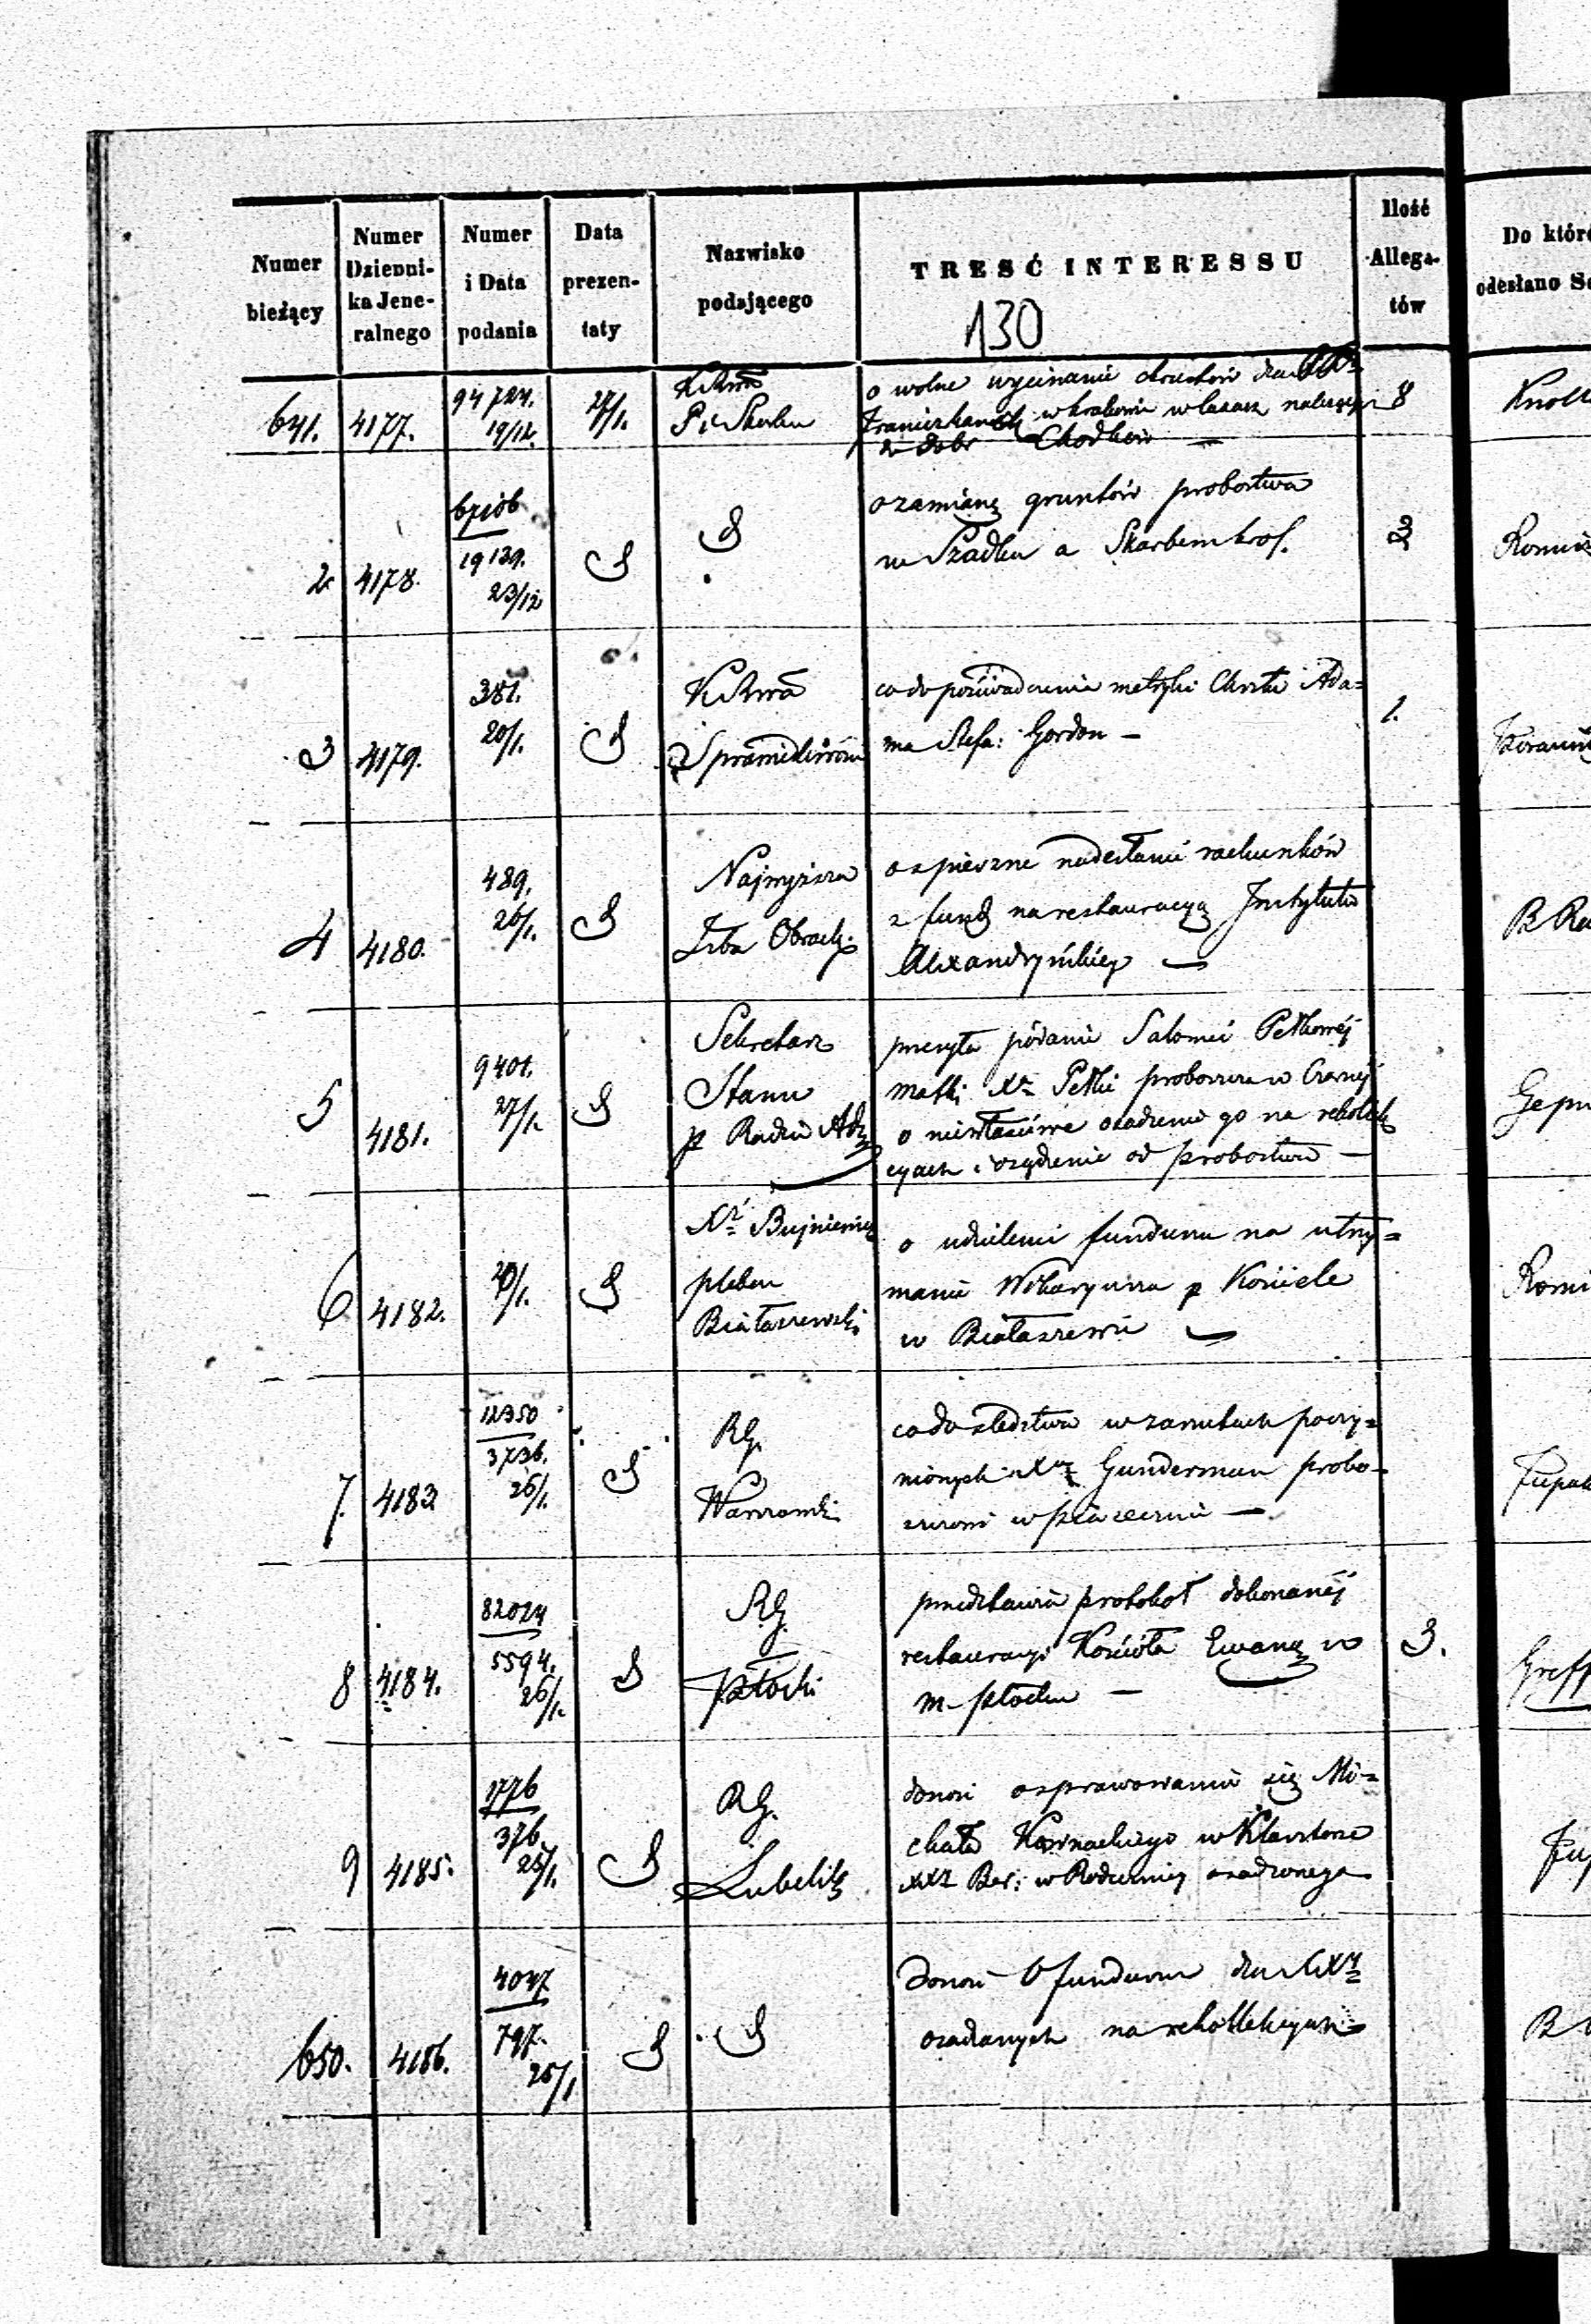 Numer bieżący
Numer Dzienni-
ka Jene-
ralnego
Numer i Data podania
Data prezen-
taty
Nazwisko podającego
TRESĆ INTERESSU
Ilość Allega-
tów
Do któr
odesłano
130
641. 4177. 94724. 19/12. 27/1.
P. i Skarbu
o wolne wycinanie dla
w lasach
do dobr Chodków —
8
2 4178. 19139. 23/12
o zamianę gruntów probostwa
w Szadku a Skarbem
3 4179. 381. 20/1.
KRwa
Sprawiedliwości
co do poświadczenia metryki Chrztu Ada=
ma Stefa: Gordon —
1.
4 4180. 489. 26/1.
Najwyższa
Izba Obrach.
o spieszne nadesłanie rachunków
z fund na restauracyą Instytutu
Alexandryńskiego —
5 4181. 9401. 27/1.
Sekretarz
Stanu
p Radzie Adm
przesyła podanie Salomei Petkowéj
matki Xa Petki proboszcza w Czarnéj
o niewłaściwe osadzenie go na rekollek
cyach i odsądzenie od probostwa —
6 4182.
Xa
pleban
Białaszewski
o udzielenie funduszu na utrzy=
manie Wikaryusza p Kościele
w Białaszewie —
7. 4183 12350 3736. 26/1.
RG.
Warszawski
co do śledztwa w zarzutach poczy=
nionych Xu Gunderman probo=
szczowi w Piasecznie —
8 4184. 82024 5594. 26/1.
RG.
Płocki
przedstawia protokół dokonanéj
restauracyi Kościoła Ewang w
m. Płocku —
3.
9 4185. 1776 376. 25/1.
RG.
Lubelski
donosi o sprawowaniu się Mi=
chała w Klasztorze
XX Ber: w Radecznicy osadzonego
650. 4186. 4047 797. 25/1
donosi o funduszu dla XX
osadzanych na rekollekcyach